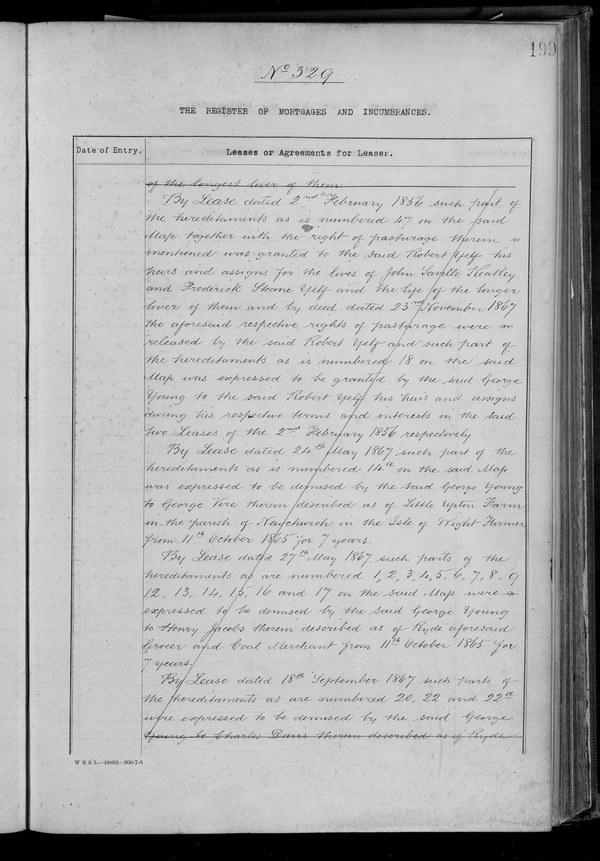 199
No 329
THE REGISTER OF MORTGAGES AND INCUMBRANCES.
Date of Entry.
Leases or Agreements for Leases.
of the longest liver of them
By Lease dated 2nd February 1856 such part of
the hereditaments as is numbered 47 on the said
Map together with the right of pasturage therein
mentioned was granted to the said Robert Yelf his
heirs and assigns for the lives of John Saville Keatley
and Frederick Sloane Yelf and the life of the longer
liver of them and by deed dated 23rd November 1867
the aforesaid respective rights of pasturage were
released by the said Robert Yelf and such part of
the hereditaments as is numbered 18 on the said
Map was expressed to be granted by the said George
Young to the said Robert Yelf his heirs and assigns
during his respective terms and interests in the said
two Leases of the 2nd February 1856 respectively
By Lease dated 24th May 1867 such part of the
hereditaments as is numbered 14a on the said Map
was expressed to be demised by the said George Young
to George Vere therein described as of Little Upton Farm
in the parish of Newchurch in the Isle of Wight Farmer
from 11th October 1865 for 7 years.
By Lease dated 27th May 1867 such parts of the
hereditaments as are numbered 1, 2, 3, 4, 5, 6, 7, 8, 9
12, 13, 14, 15, 16 and 17 on the said Map were
expressed to be demised by the said George Young
to Henry Jacobs therein described as of Ryde aforesaid
Grocer and Coal Merchant from 11th October 1865 for
7 years.
By Lease dated 18th September 1867 such parts of
the hereditaments as are numbered 20, 22 and 22a
were expressed to be demised by the said George
Young to Charles Davis therein described as of Ryde
W B & L—48682—200-7-5